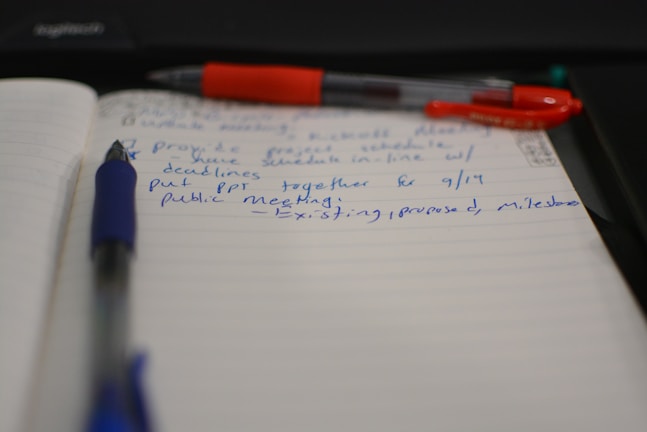 logitech
update meeting: Kickoff Meeting
Provide project schedule
- have schedule in-line w/
deadlines
put ppt together for 9/19
public meeting:
- Existing, proposed, milestone